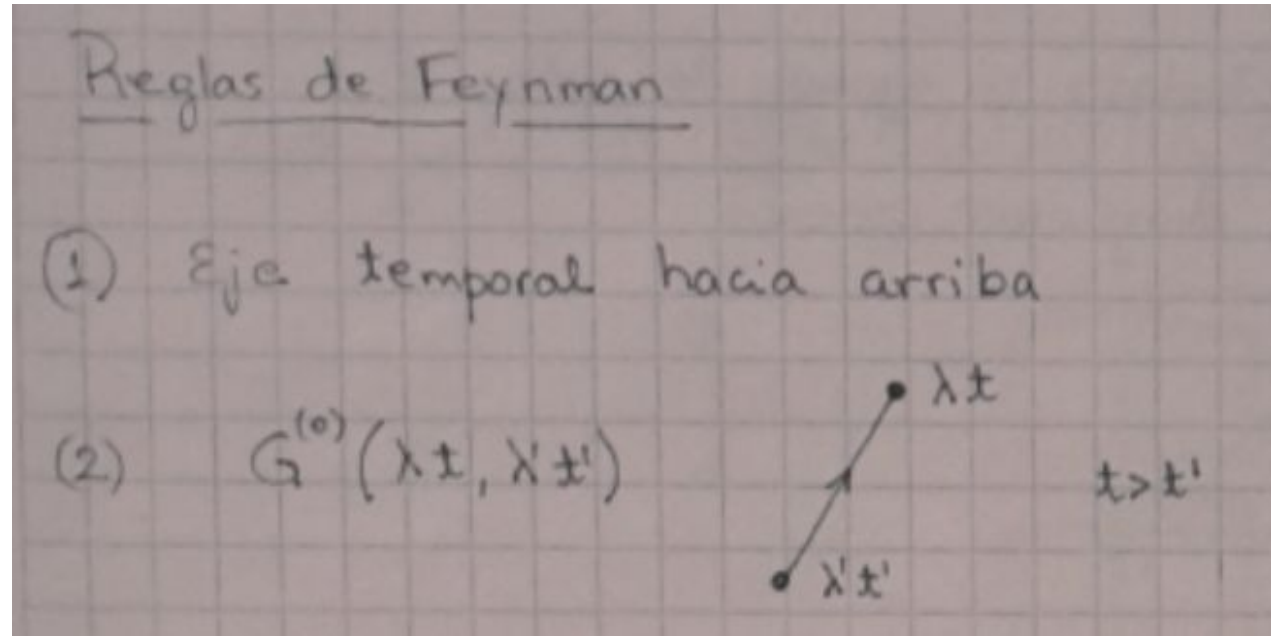 Reglas de Feynman
(1) Eje temporal hacia arriba
λt
(2) G⁽⁰⁾(λt, λ't') t>t'
λ't'